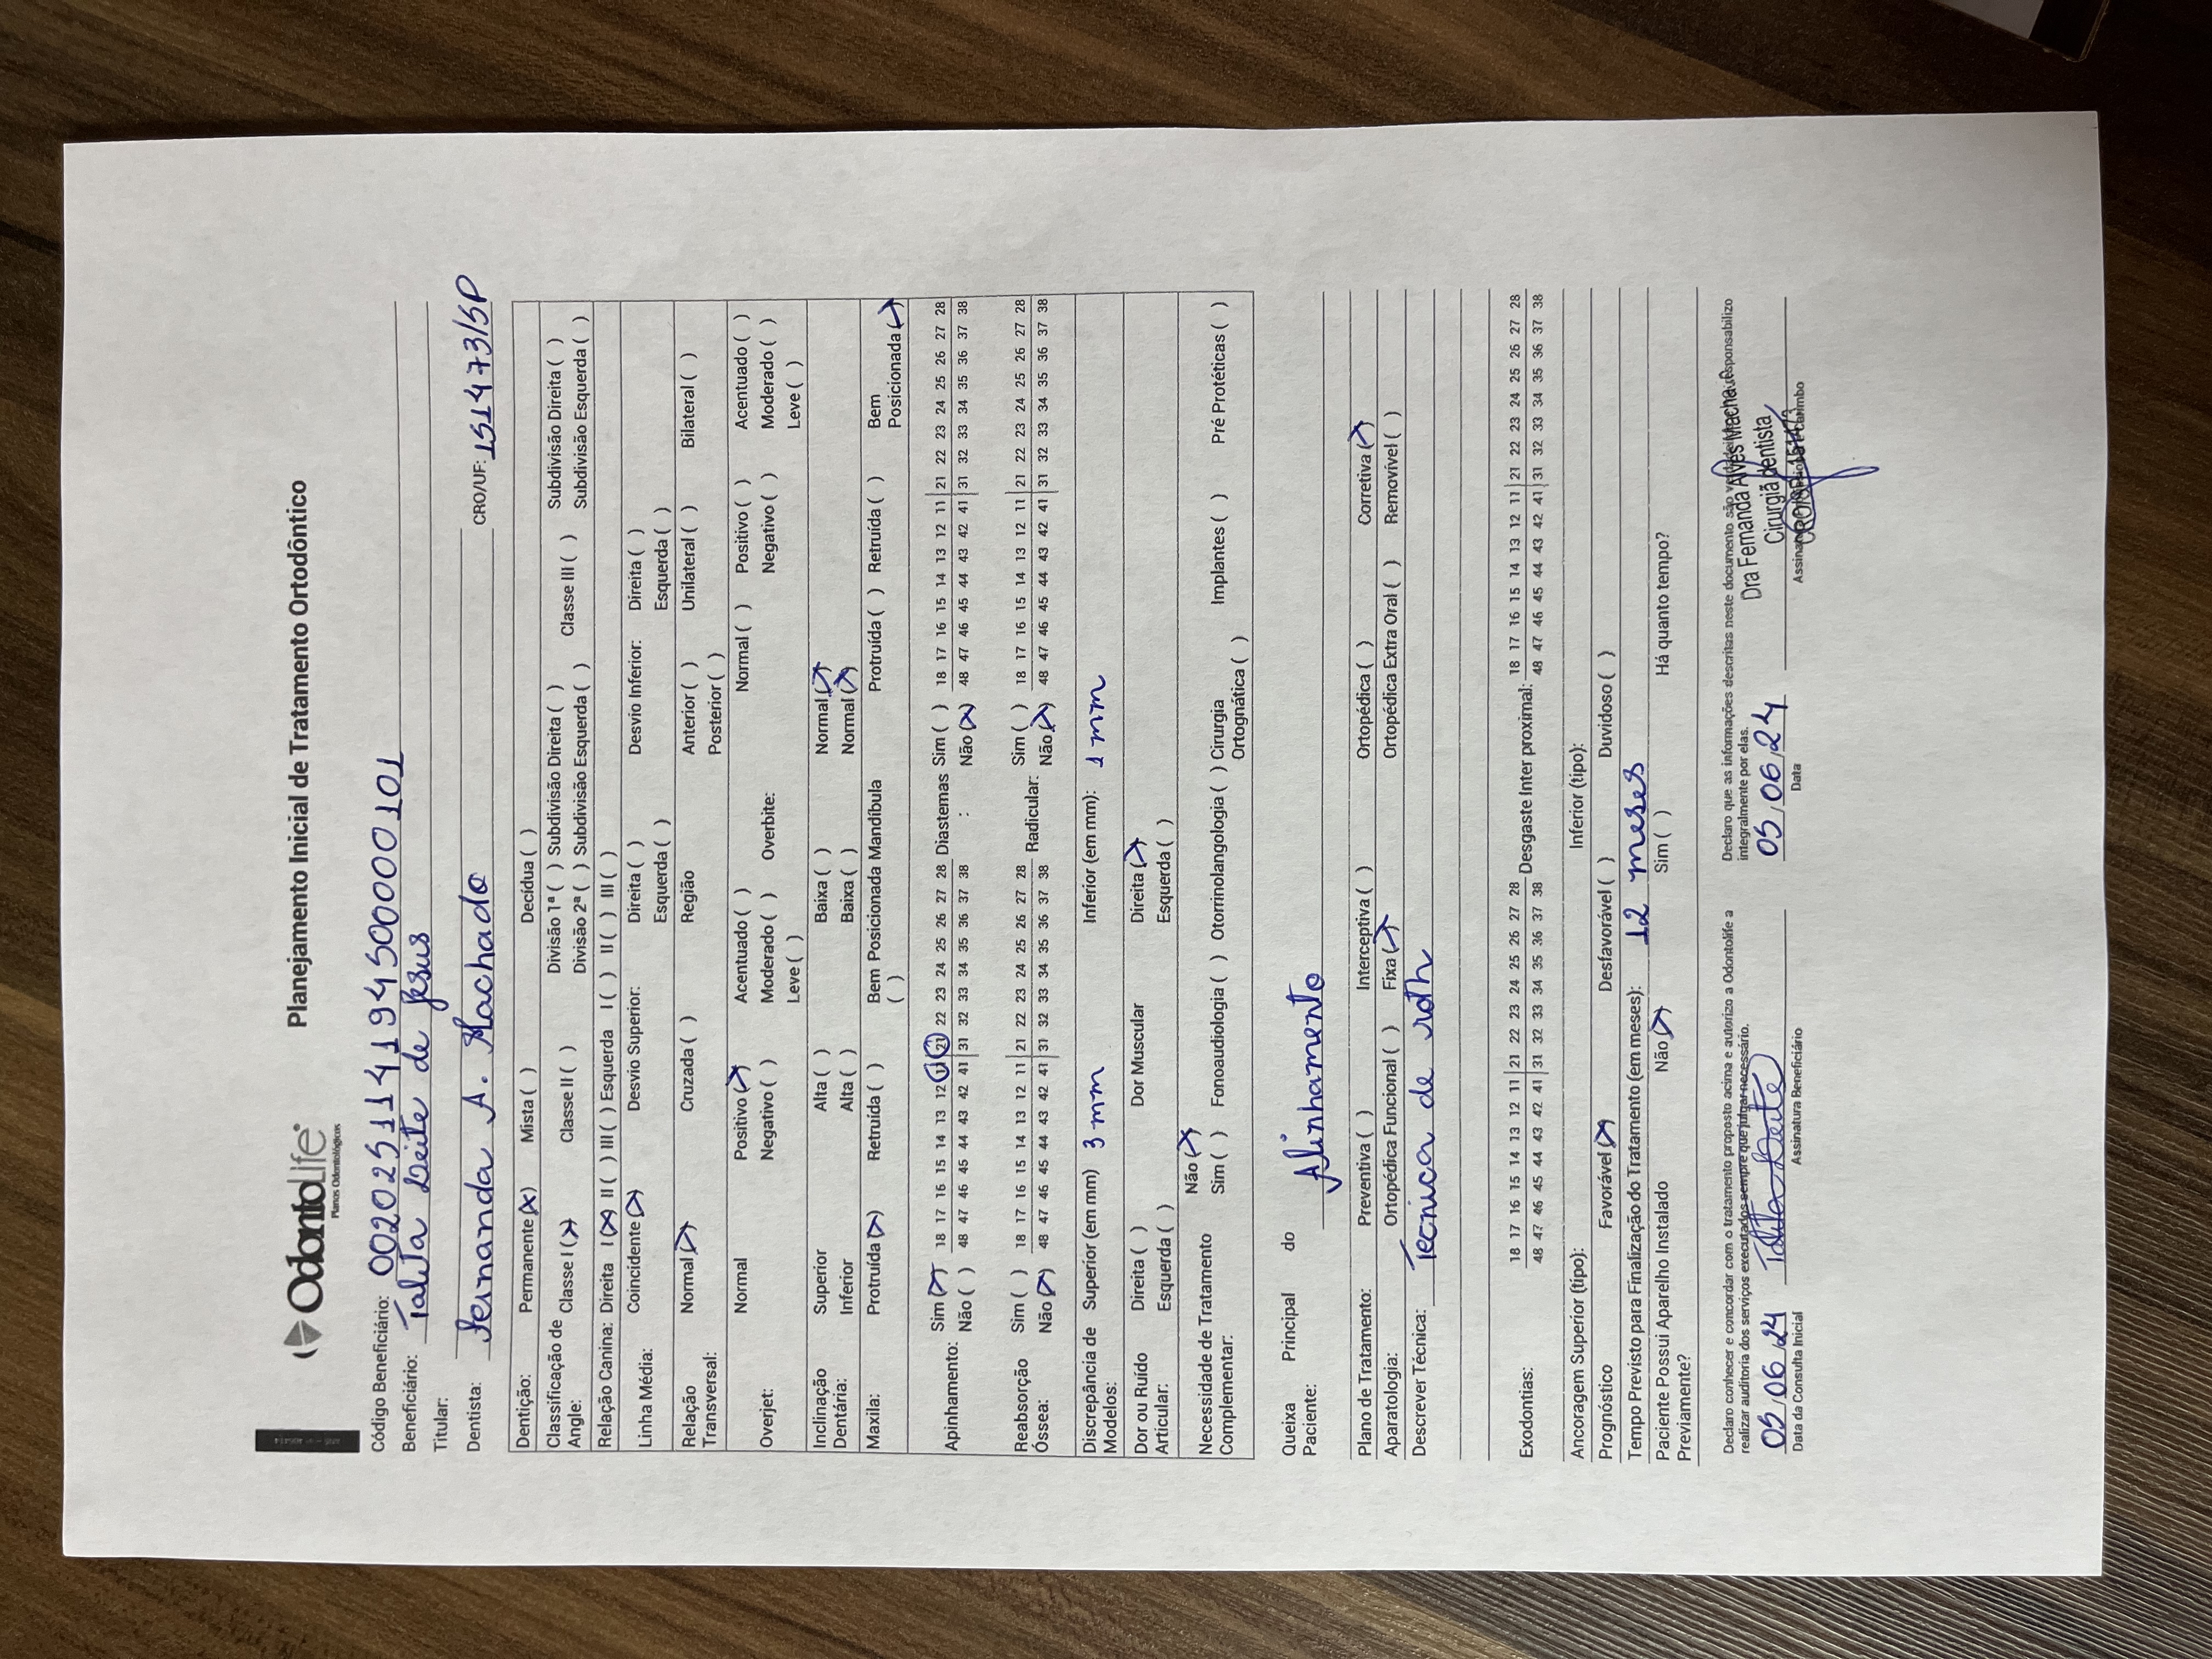 OdontoLife
Planos Odontológicos
Planejamento Inicial de Tratamento Ortodôntico
Código Beneficiário: 00202511419450000101
Beneficiário: Talita Leite de Jesus
Titular:
Dentista: Fernanda A. Machado CRO/UF: 151473/SP
Dentição: Permanente (X) Mista ( ) Decídua ( )
Classificação de Angle: Classe I (X) Classe II ( ) Divisão 1ª ( ) Subdivisão Direita ( ) Classe III ( ) Subdivisão Direita ( )
Divisão 2ª ( ) Subdivisão Esquerda ( ) Subdivisão Esquerda ( )
Relação Canina: Direita I (X) II ( ) III ( ) Esquerda I ( ) II ( ) III ( )
Linha Média: Coincidente (X) Desvio Superior: Direita ( ) Desvio Inferior: Direita ( )
Esquerda ( ) Esquerda ( )
Relação Transversal: Normal (X) Cruzada ( ) Região Anterior ( ) Unilateral ( ) Bilateral ( )
Posterior ( )
Overjet: Normal Positivo (X) Acentuado ( ) Overbite: Normal ( ) Positivo ( ) Acentuado ( )
Negativo ( ) Moderado ( ) Negativo ( ) Moderado ( )
Leve ( ) Leve ( )
Inclinação Dentária: Superior Alta ( ) Baixa ( ) Normal (X)
Inferior Alta ( ) Baixa ( ) Normal (X)
Maxila: Protruída (X) Retruída ( ) Bem Posicionada ( ) Mandíbula Protruída ( ) Retruída ( ) Bem Posicionada (X)
Apinhamento: Sim (X) 18 17 16 15 14 13 12 11 21 22 23 24 25 26 27 28 Diastemas : Sim ( ) 18 17 16 15 14 13 12 11 21 22 23 24 25 26 27 28
Não ( ) 48 47 46 45 44 43 42 41 31 32 33 34 35 36 37 38 Não (X) 48 47 46 45 44 43 42 41 31 32 33 34 35 36 37 38
Reabsorção Óssea: Sim ( ) 18 17 16 15 14 13 12 11 21 22 23 24 25 26 27 28 Radicular: Sim ( ) 18 17 16 15 14 13 12 11 21 22 23 24 25 26 27 28
Não (X) 48 47 46 45 44 43 42 41 31 32 33 34 35 36 37 38 Não (X) 48 47 46 45 44 43 42 41 31 32 33 34 35 36 37 38
Discrepância de Modelos: Superior (em mm) 3 mm Inferior (em mm): 1 mm
Dor ou Ruído Articular: Direita ( ) Dor Muscular Direita (X)
Esquerda ( ) Esquerda ( )
Necessidade de Tratamento Complementar: Não (X)
Sim ( ) Fonoaudiologia ( ) Otorrinolangologia ( ) Cirurgia Ortognática ( ) Implantes ( ) Pré Protéticas ( )
Queixa Principal do Paciente: Alinhamento
Plano de Tratamento: Preventiva ( ) Interceptiva ( ) Ortopédica ( ) Corretiva (X)
Aparatologia: Ortopédica Funcional ( ) Fixa (X) Ortopédica Extra Oral ( ) Removível ( )
Descrever Técnica: Tecnica de roth
Exodontias: 18 17 16 15 14 13 12 11 21 22 23 24 25 26 27 28 Desgaste Inter proximal: 18 17 16 15 14 13 12 11 21 22 23 24 25 26 27 28
48 47 46 45 44 43 42 41 31 32 33 34 35 36 37 38 48 47 46 45 44 43 42 41 31 32 33 34 35 36 37 38
Ancoragem Superior (tipo): Inferior (tipo):
Prognóstico Favorável (X) Desfavorável ( ) Duvidoso ( )
Tempo Previsto para Finalização do Tratamento (em meses): 12 meses
Paciente Possui Aparelho Instalado Previamente? Não (X) Sim ( ) Há quanto tempo?
Declaro conhecer e concordar com o tratamento proposto acima e autorizo a Odontolife a
realizar auditoria dos serviços executados sempre que julgar necessário.
05/06/24 Talita Leite
Data da Consulta Inicial Assinatura Beneficiário
Declaro que as informações descritas neste documento são responsabilizo
integralmente por elas.
Dra Fernanda Alves Machado
Cirurgiã dentista
CRO/SP 151473
05/06/24
Data